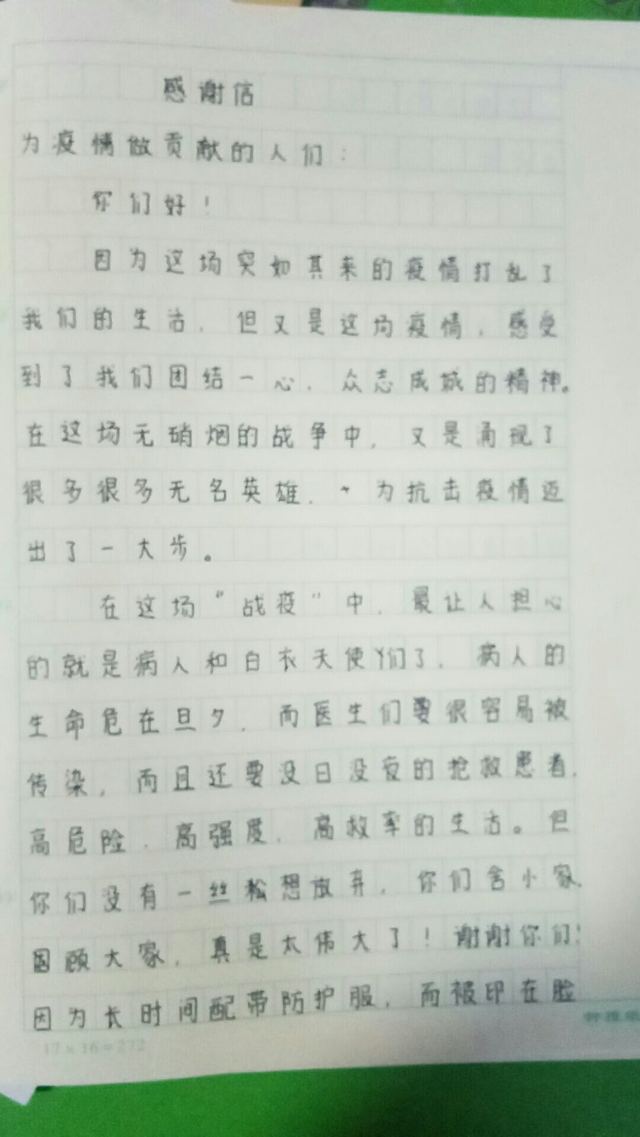 感谢信
为疫情做贡献的人们：
你们好！
因为这场突如其来的疫情打乱了
我们的生活，但又是这场疫情，感受
到了我们团结一心，众志成城的精神。
在这场无硝烟的战争中，又是涌现了
很多很多无名英雄，为抗击疫情迈
出了一大步。
在这场“战疫”中，最让人担心
的就是病人和白衣天使们了，病人的
生命危在旦夕，而医生们要很容易被
传染，而且还要没日没夜的抢救患者，
高危险，高强度，高救率的生活。但
你们没有一丝松想放弃，你们舍小家，
顾大家，真是太伟大了！谢谢你们！
因为长时间配带防护服，而被印在脸
17×16=272